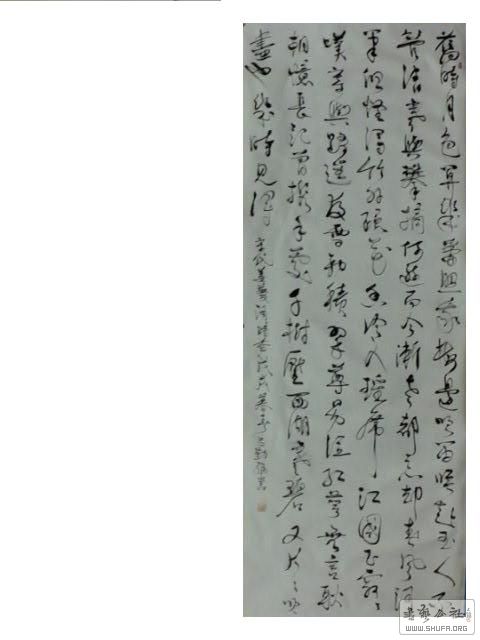 舊時月色算幾番照我梅邊吹笛喚起玉人不
管清寒與攀摘何遜而今漸老都忘却春風詞
筆但怪得竹外疏花香冷入瑶席江國正寂寂
嘆寄與路遥夜雪初積翠尊易泣紅萼無言耿
相憶長記曾携手處千樹壓西湖寒碧又片片吹
盡也幾時見得
宋代姜夔詞暗香
书艺公社
WWW.SHUFA.ORG